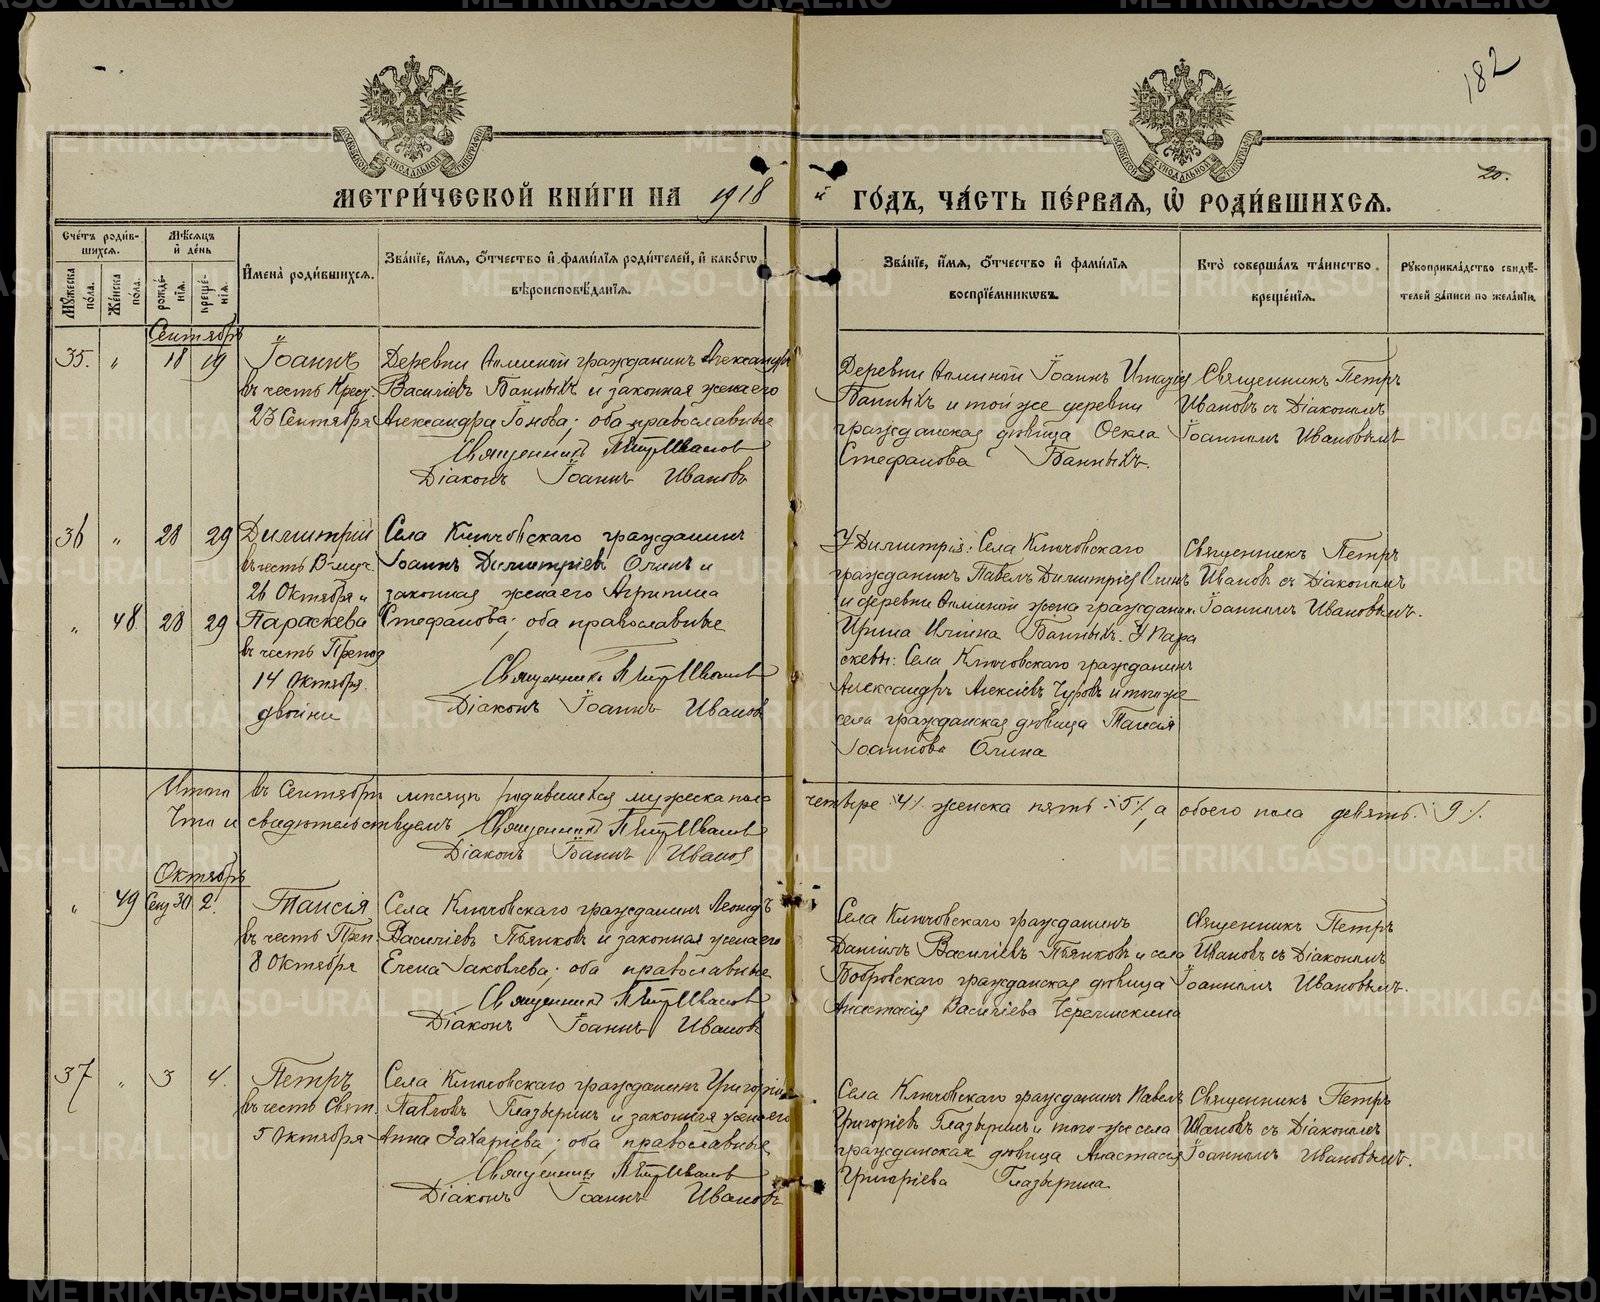 182
20.
МЕТРИ́ЧЕСКОЙ КНИ́ГИ НА 1918 й ГО́ДЪ, ЧА́СТЬ ПЕ́РВАѦ, Ѡ҆ РОДИ́ВШИХСѦ.
Сче́тъ роди́вшихсѧ.
Мꙋ́жеска по́ла.
Же́нска по́ла.
Мѣ́сѧцъ и҆ де́нь
рожде́нїѧ.
креще́нїѧ.
И҆мена̀ роди́вшихсѧ.
Зва́нїе, и҆́мѧ, ѻ҆́тчество и҆ фами́лїѧ роди́телей, и҆ како́гѡ вѣроисповѣ́данїѧ.
Зва́нїе, и҆́мѧ, ѻ҆́тчество и҆ фами́лїѧ воспрїе́мникѡвъ.
Кто̀ соверша́лъ та́инство креще́нїѧ.
Рꙋкоприкла́дство свидѣ́телей за́писи по жела́нїю.
Сентябрь
35. " 18 19
Іоаннъ
въ честь Крест.
23 Сентября
Деревни гражданинъ Александръ
Василіевъ Банныхъ и законная жена его
Александра Іонова; оба православные
Священникъ Петръ Ивановъ
Діаконъ Іоаннъ Ивановъ
Деревни Іоаннъ
Банныхъ и той же деревни
гражданская дѣвица Фекла
Стефанова Банныхъ.
Священникъ Петръ
Ивановъ съ Діакономъ
Іоанномъ Ивановымъ
36 " 28 29
Димитрій
въ честь В-муч.
26 Октября и
" 48 28 29
Параскева
въ честь Препод
14 Октября.
двойни
Села Ключовскаго гражданинъ
Іоаннъ Димитріевъ Олинъ и
законная жена его Агрипина
Стефанова; оба православные
Священникъ Петръ Ивановъ
Діаконъ Іоаннъ Ивановъ
У Димитрія: Села Ключовскаго
гражданинъ Павелъ Димитріевъ Олинъ
и деревни жена гражданин.
Ирина Банныхъ. У Пара
скевы: Села Ключовскаго гражданинъ
Александръ Алексіевъ и того же
села гражданская дѣвица Таисія
Іоаннова Олина
Священникъ Петръ
Ивановъ съ Діакономъ
Іоанномъ Ивановымъ.
Итого въ Сентябрѣ мѣсяцѣ родившихся мужеска пола четыре ·/.4/. женска пять ·/.5/., а обоего пола девять ·/.9/.
Что и свидѣтельствуемъ Священникъ Петръ Ивановъ
Діаконъ Іоаннъ Ивановъ
Октябрь
" 49 Сен 30 2.
Таисія
въ честь Преп.
8 Октября
Села Ключовскаго гражданинъ Леонидъ
Василіевъ Пьянковъ и законная жена его
Елена Іаковлева; оба православные
Священникъ Петръ Ивановъ
Діаконъ Іоаннъ Ивановъ
Села Ключовскаго гражданинъ
Даніилъ Василіевъ Пьянковъ и села
Бобровскаго гражданская дѣвица
Анастасія Василіева
Священникъ Петръ
Ивановъ съ Діакономъ
Іоанномъ Ивановымъ.
37 " 3 4.
Петръ
въ честь Свят.
5 Октября
Села Ключовскаго гражданинъ Григорій
Павловъ Глазыринъ и законная жена его
Анна Захаріева; оба православные
Священникъ Петръ Ивановъ
Діаконъ Іоаннъ Ивановъ
Села Ключовскаго гражданинъ Павелъ
Григоріевъ Глазыринъ и того же села
гражданская дѣвица Анастасія
Григоріева Глазырина
Священникъ Петръ
Ивановъ съ Діакономъ
Іоанномъ Ивановымъ.
METRIKI.GASO-URAL.RU